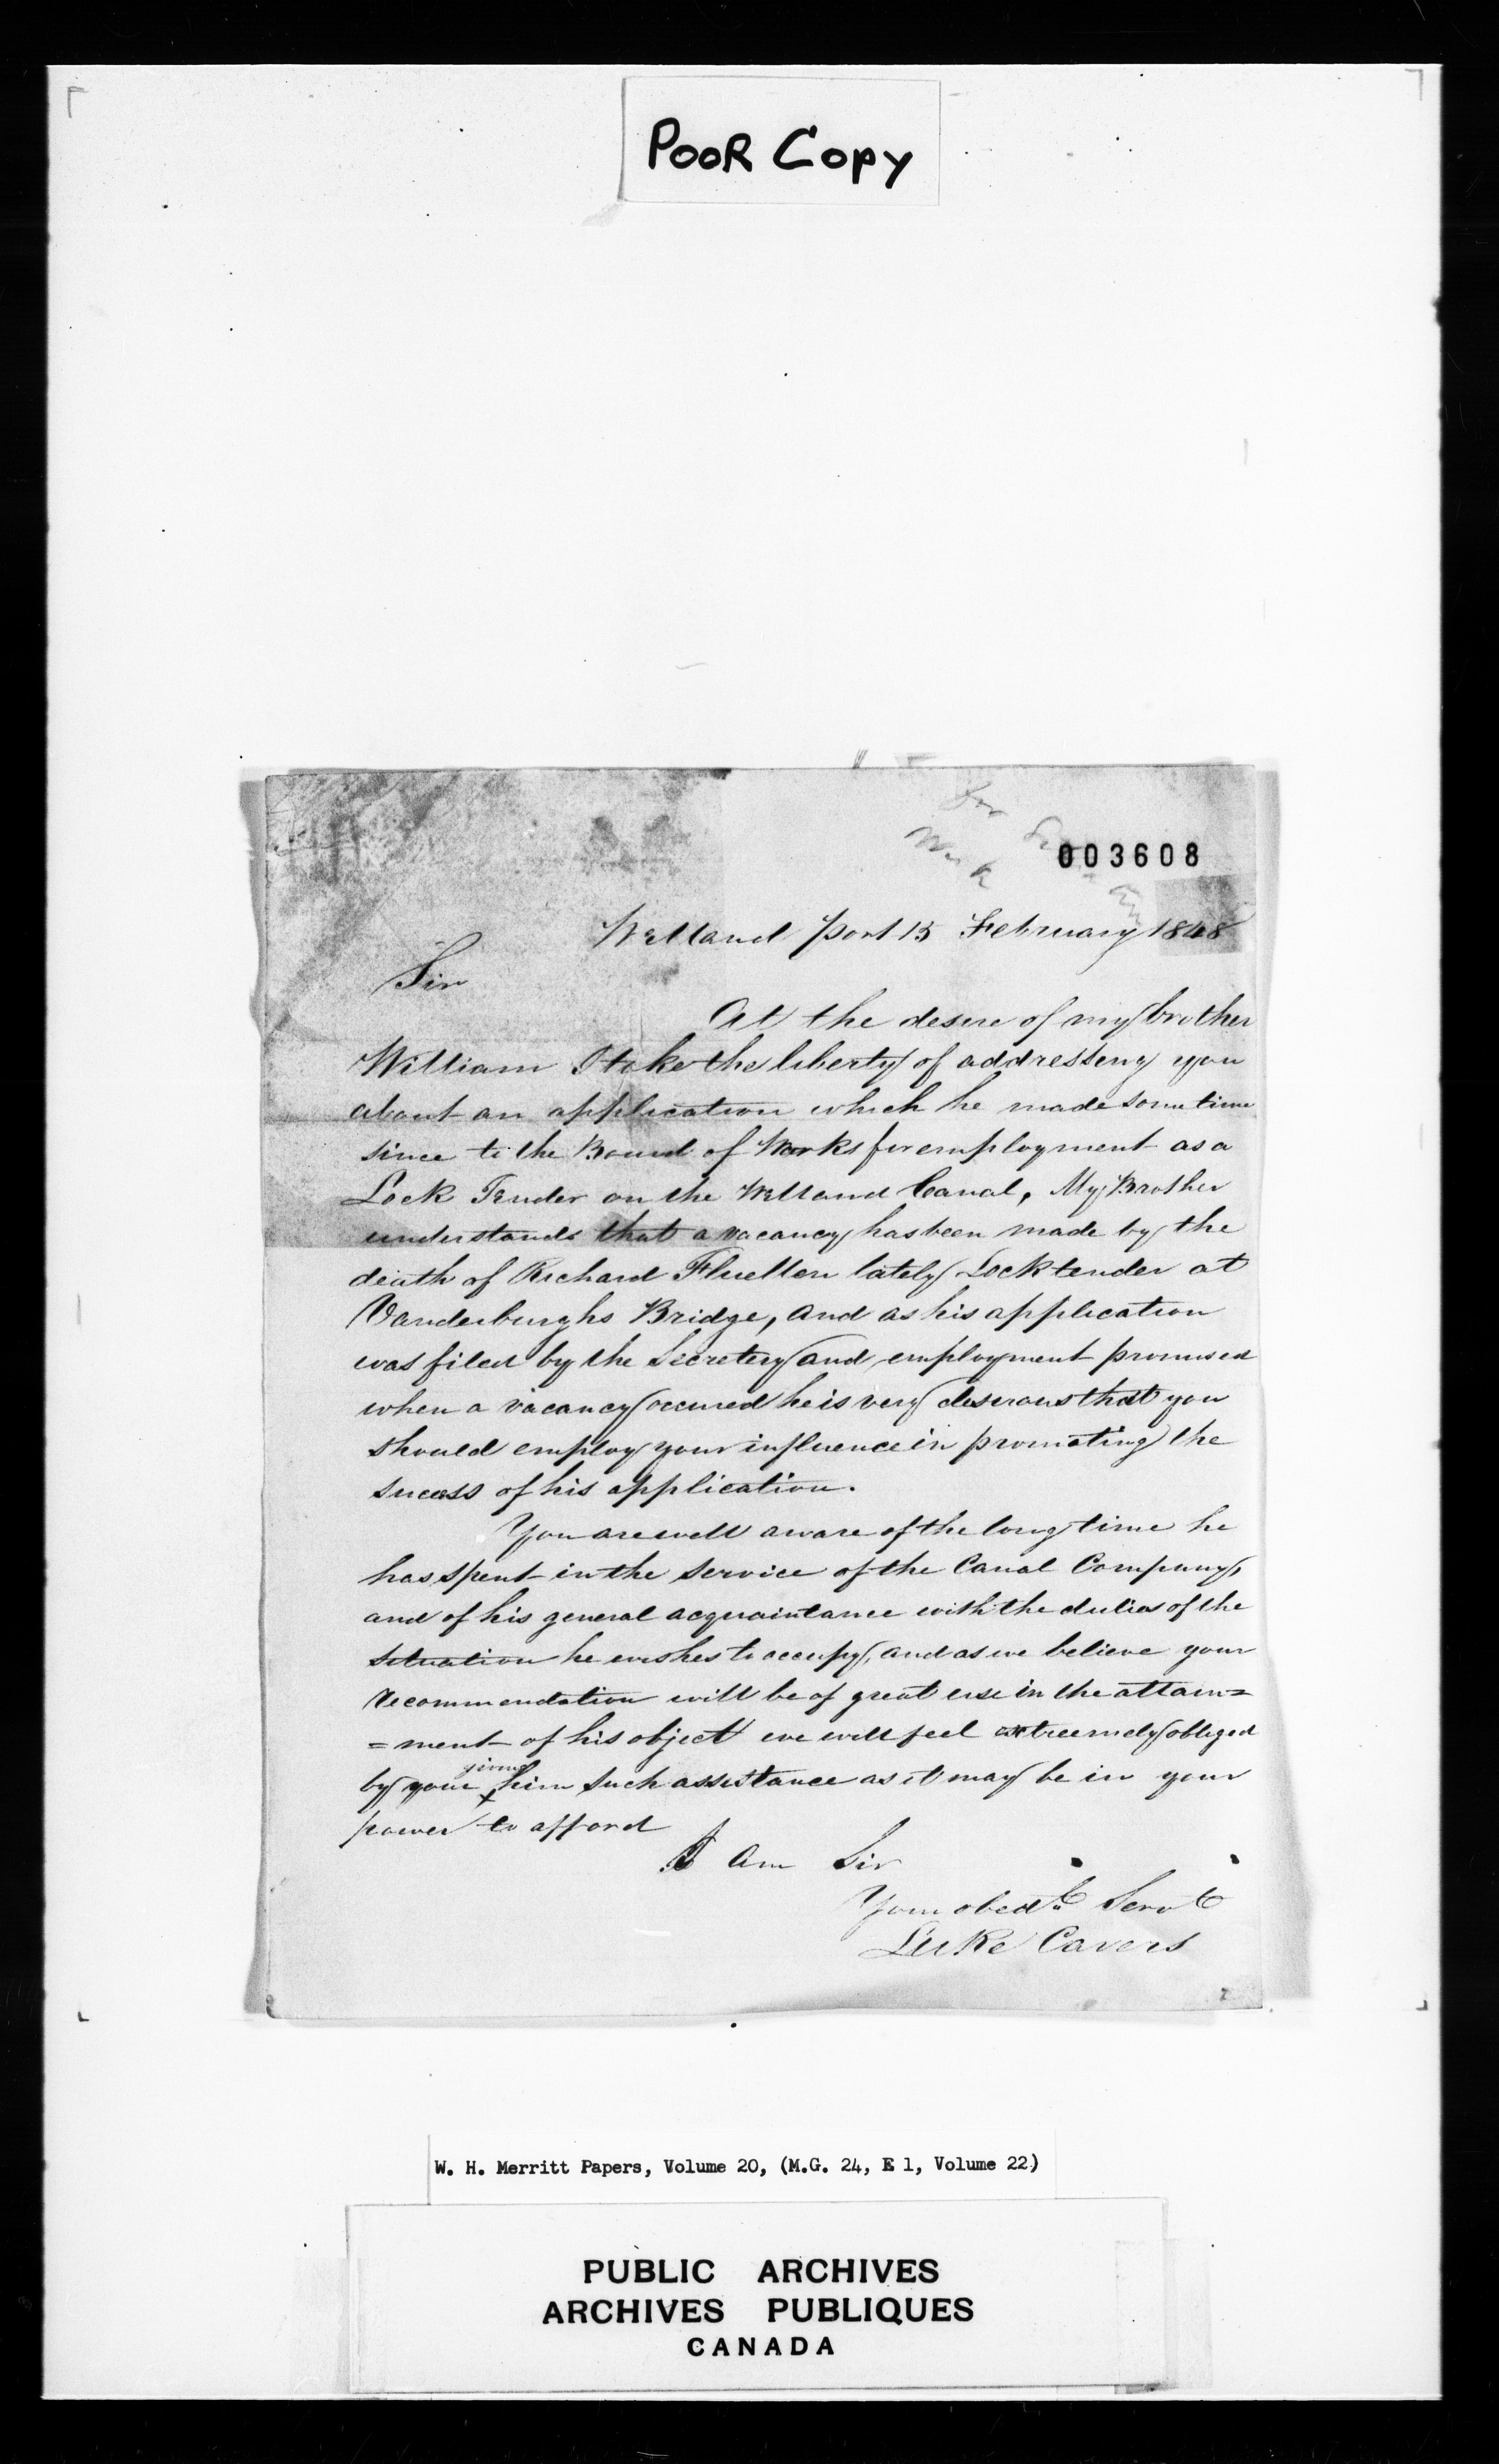 POOR COPY
003608
Welland Port 15 February 1848
Sir
At the desire of my brother
William I take the liberty of addressing you
about an application which he made some time
since to the Board of Works for employment as a
Lock Tender on the Welland Canal, My Brother
understands that a vacancy has been made by the
death of Richard Fluellen lately Locktender at
Vanderburghs Bridge, and as his application
was filed by the Secretery and employment promised
when a vacancy occured he is very deserous that you
should employ your influence in promoting the
sucess of his application.
You are well aware of the long time he
has spent in the service of the Canal Company,
and of his general acquaintance with the duties of the
situation he wishes to occupy, and as we believe your
recommendation will be of great use in the attain=
=ment of his object we will feel extreemely obliged
giving
by your him such assistance as it may be in your
power to afford
I am Sir
Your obedt Servt
Luke Cavers
W. H. Merritt Papers, Volume 20, (M.G. 24, E 1, Volume 22)
PUBLIC ARCHIVES
ARCHIVES PUBLIQUES
CANADA